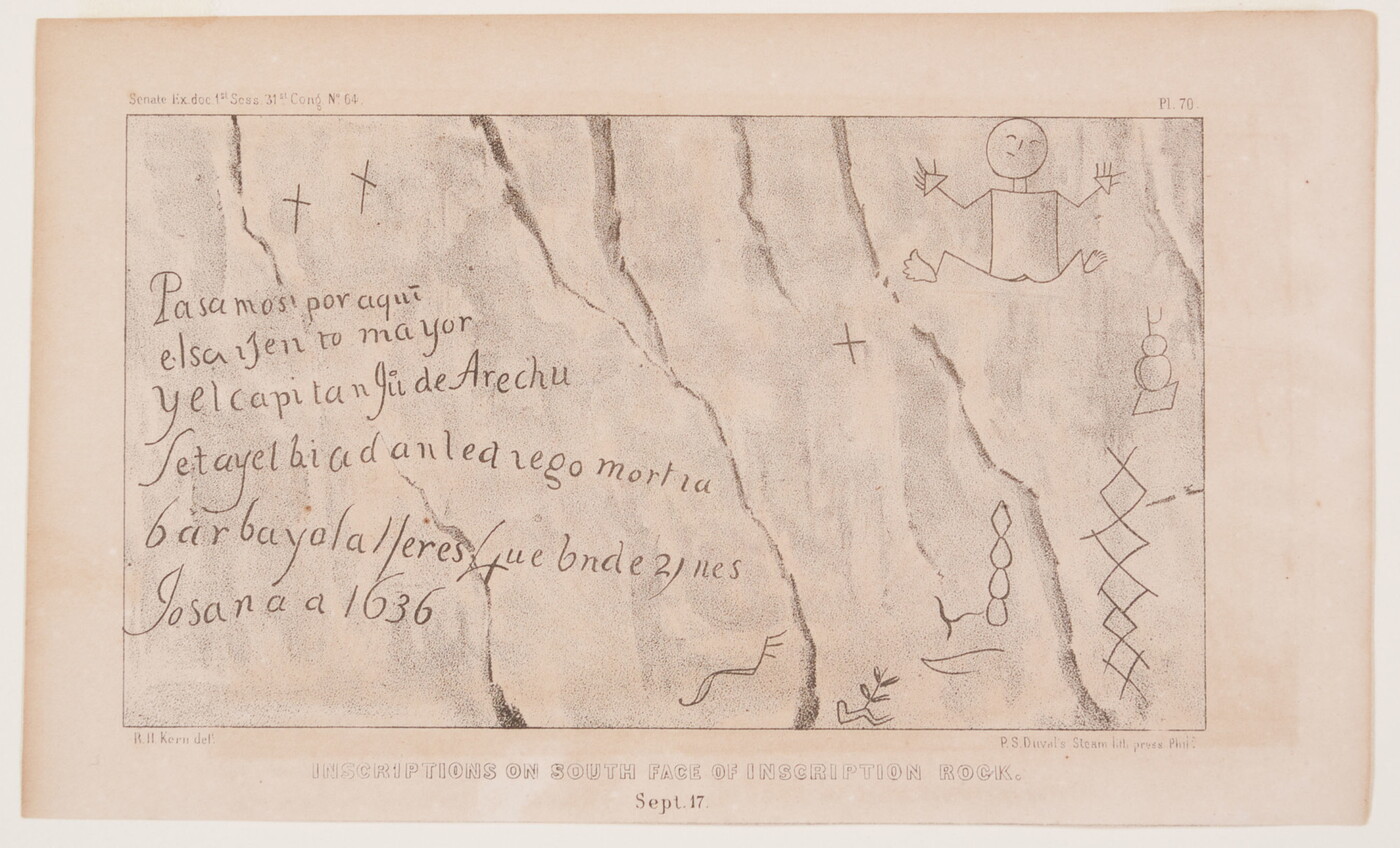 Senate Ex. doc. 1st Sess. 31st Cong. No 64.
Pl. 70.
Pasamos por aqui
elsarJento mayor
yelcapitan Ju de Arechu
letayel biadanled rego mortra
barbayola lferes Que bnde 21 nes
Josana a 1636
R.H. Kern del.
P.S. Duval's Steam lith. press Phila.
INSCRIPTIONS ON SOUTH FACE OF INSCRIPTION ROCK.
Sept. 17.